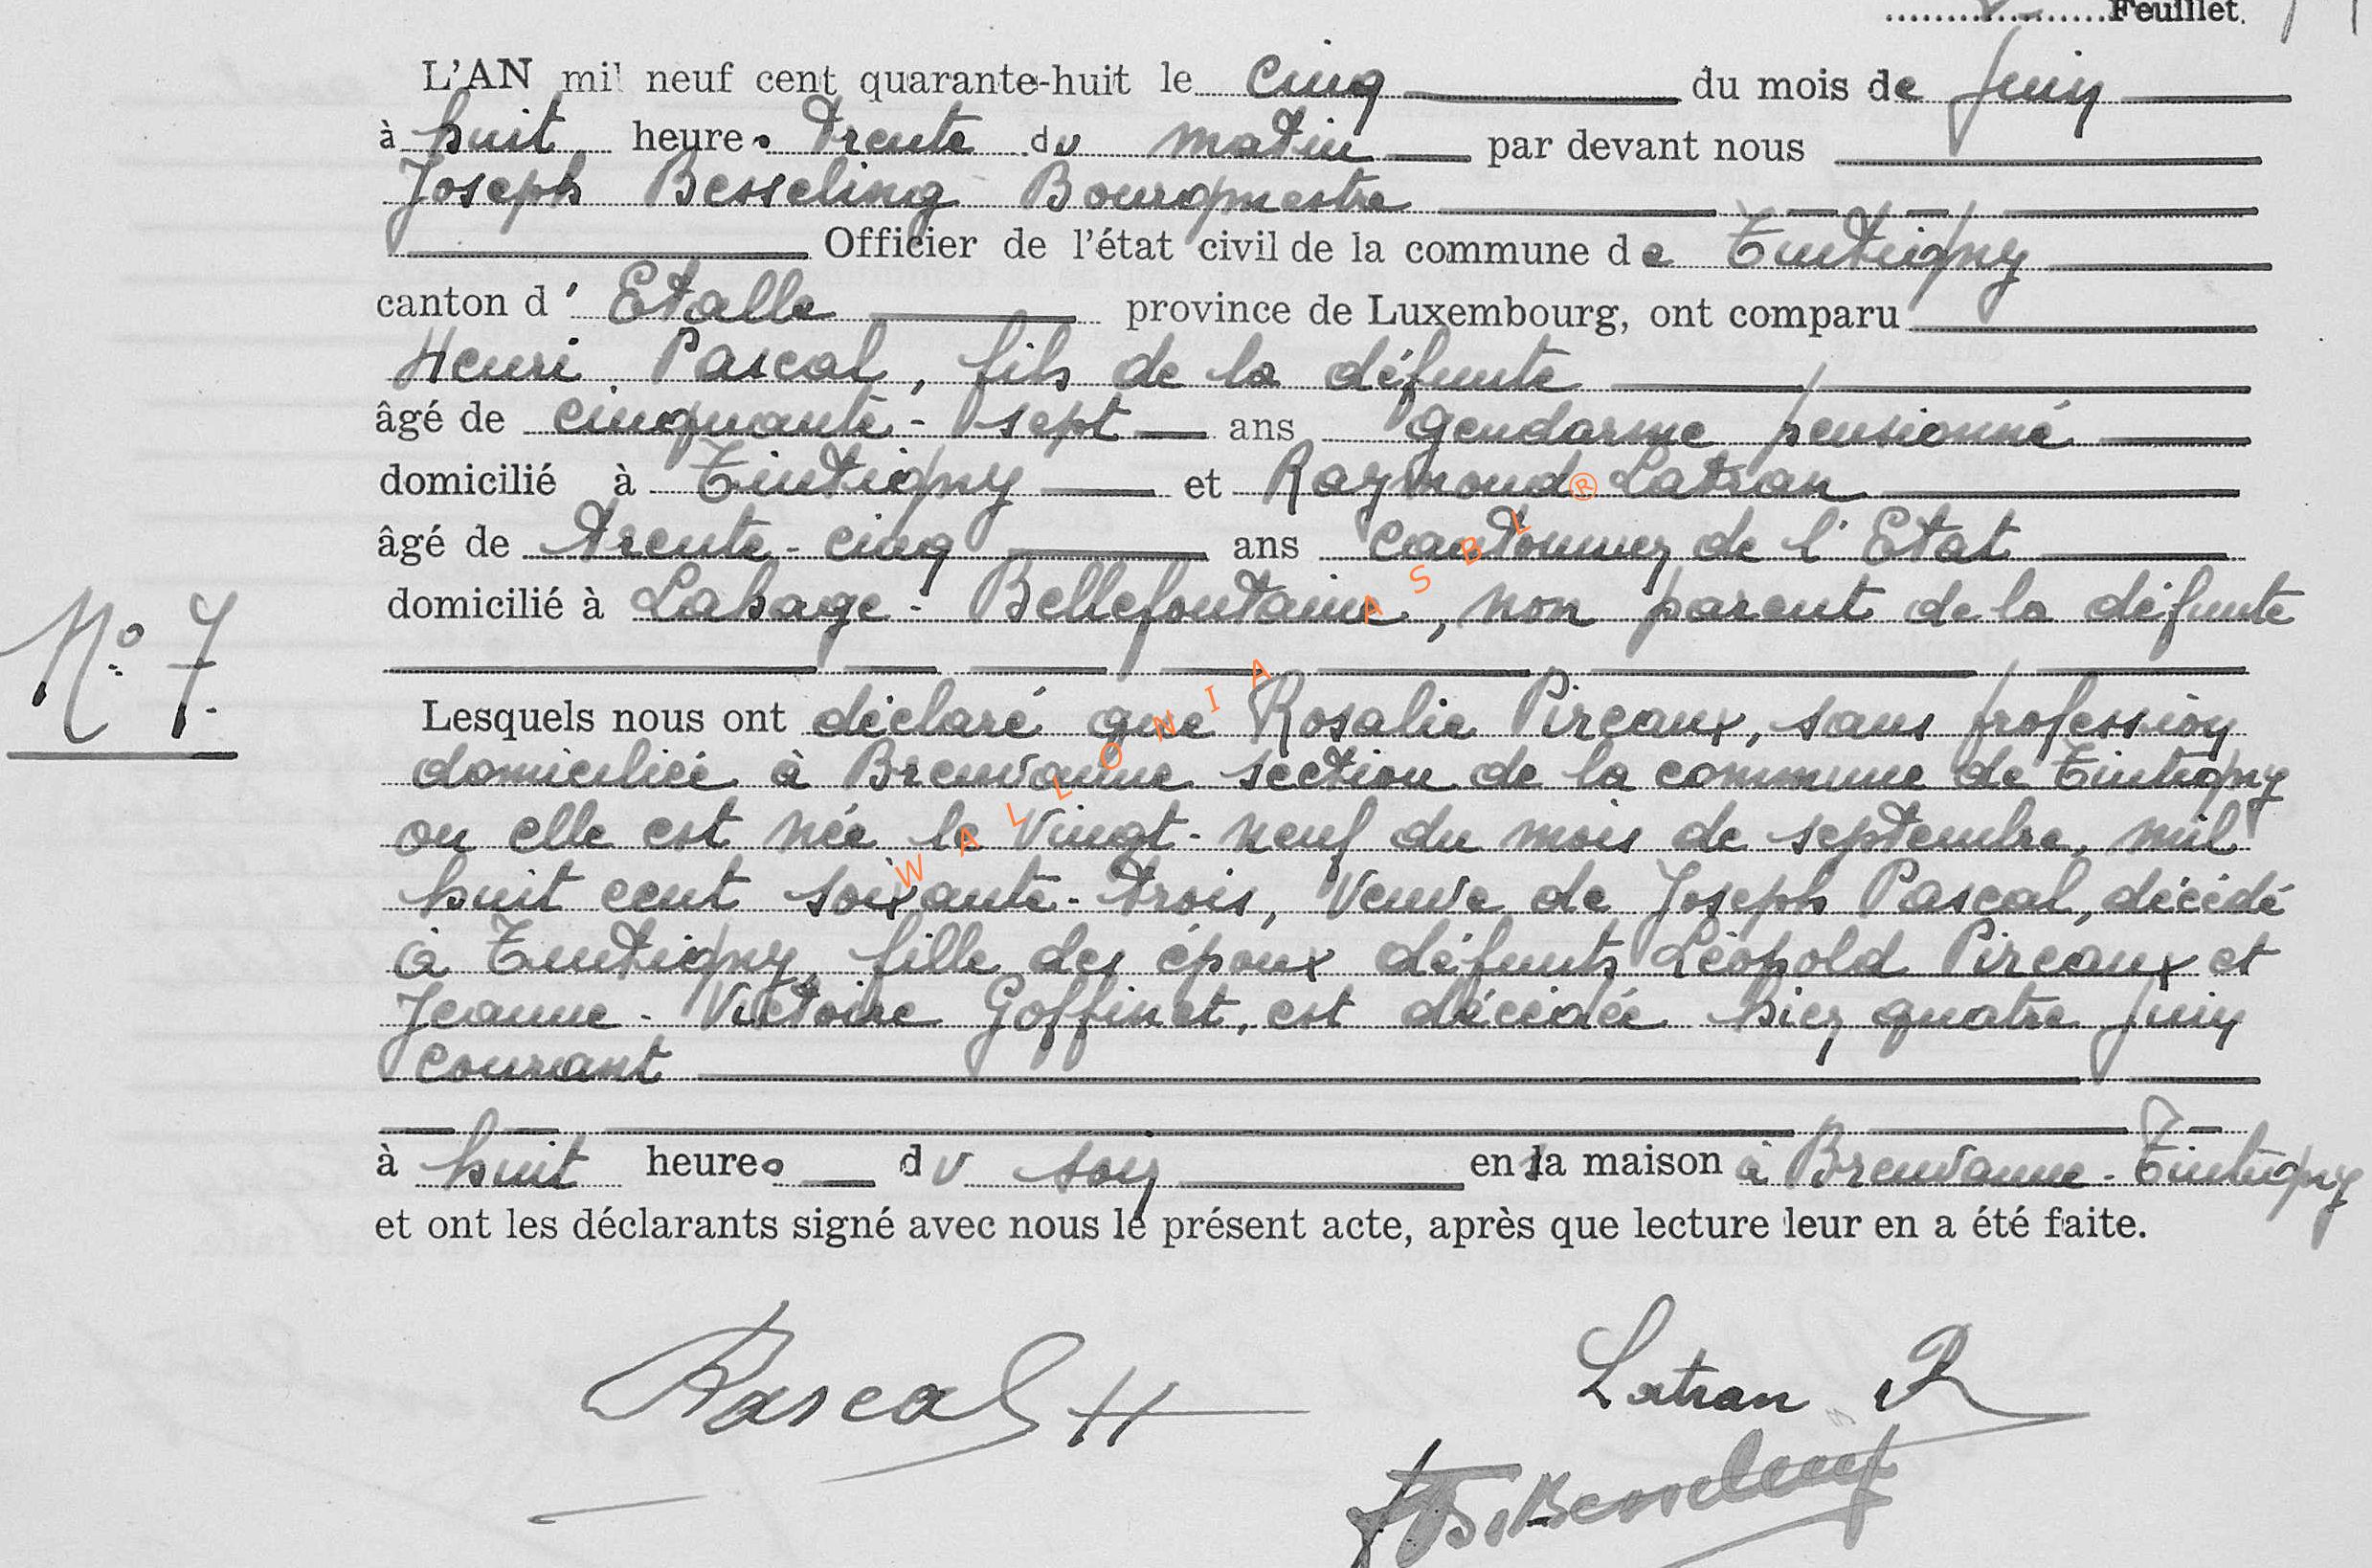 Feuillet.
L'AN mil neuf cent quarante-huit le cinq du mois de Juin
à huit heures trente du matin par devant nous
Joseph Besseling Bourgmestre
Officier de l'état civil de la commune de Tintigny
canton d' Etalle province de Luxembourg, ont comparu
Henri Pascal, fils de la défunte
âgé de cinquante-sept ans gendarme pensionné
domicilié à Tintigny et Raymond Latran
âgé de trente-cinq ans cantonnier de l'Etat
domicilié à Lahage-Bellefontaine, non parent de la défunte
N° 7.
Lesquels nous ont déclaré que Rosalie Pireaux, sans profession
domiciliée à Breuvanne section de la commune de Tintigny
ou elle est née le vingt-neuf du mois de septembre, mil
huit cent soixante-trois, veuve de Joseph Pascal, décédé
à Tintigny, fille des époux défunts Léopold Pireaux et
Jeanne-Victoire Goffinet, est décédée hier quatre Juin
courant
à huit heures du soir en la maison à Breuvanne-Tintigny
et ont les déclarants signé avec nous le présent acte, après que lecture leur en a été faite.
Pascal H
Latran R
Besseling
WALLONIA ASBL ®